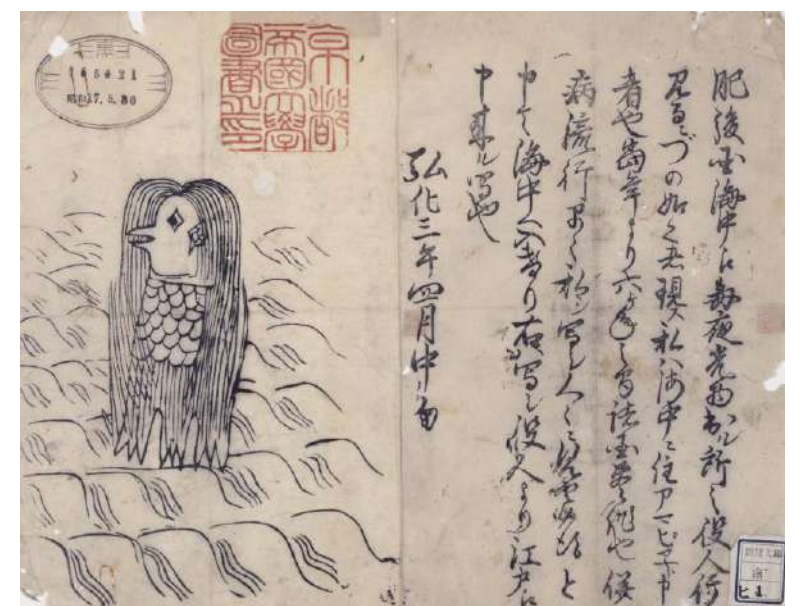 肥後国海中江毎夜光物出ル所之役人行
見るニづの如く者現ス私ハ海中ニ住アマビヱト申
者也當年より六ヶ年之間諸国豊作也併
病流行早々私ヲ写シ人々ニ見セ候得と
申て海中へ入けり右写シ役人より江戸江
申来ル写也
弘化三年四月中旬
京都
帝國大學
圖書之印
昭和17.5.30
ヒ 1